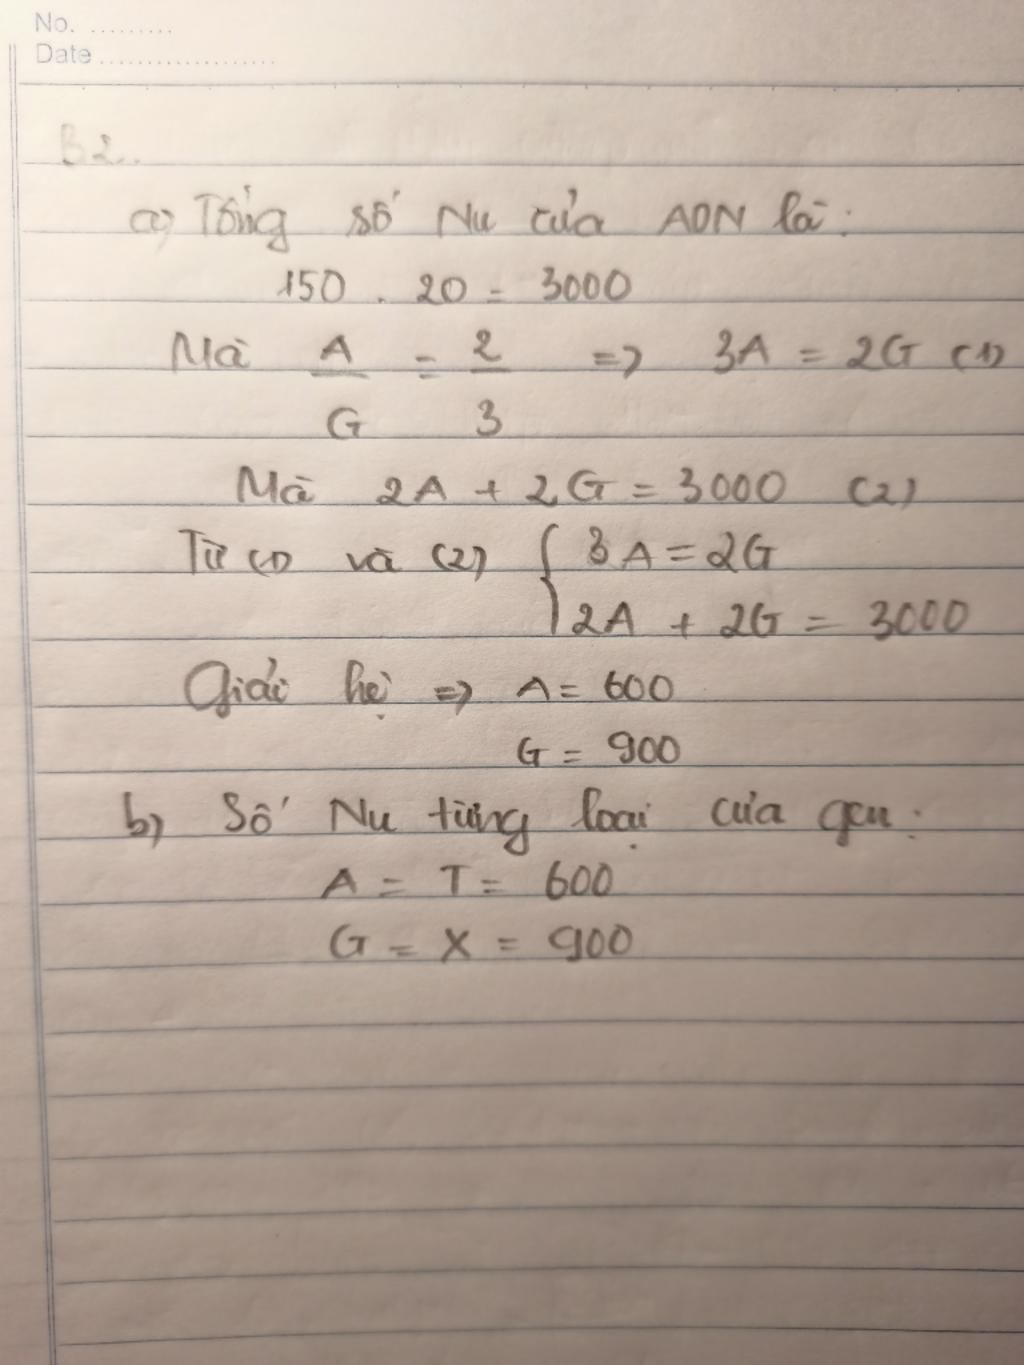 No. .........
Date ...................
B2..
a) Tổng số Nu của ADN là:
150 . 20 = 3000
Mà A/G = 2/3 => 3A = 2G (1)
Mà 2A + 2G = 3000 (2)
Từ (1) và (2) { 3A = 2G
2A + 2G = 3000
Giải hệ => A = 600
G = 900
b) Số Nu từng loại của gen:
A = T = 600
G = X = 900